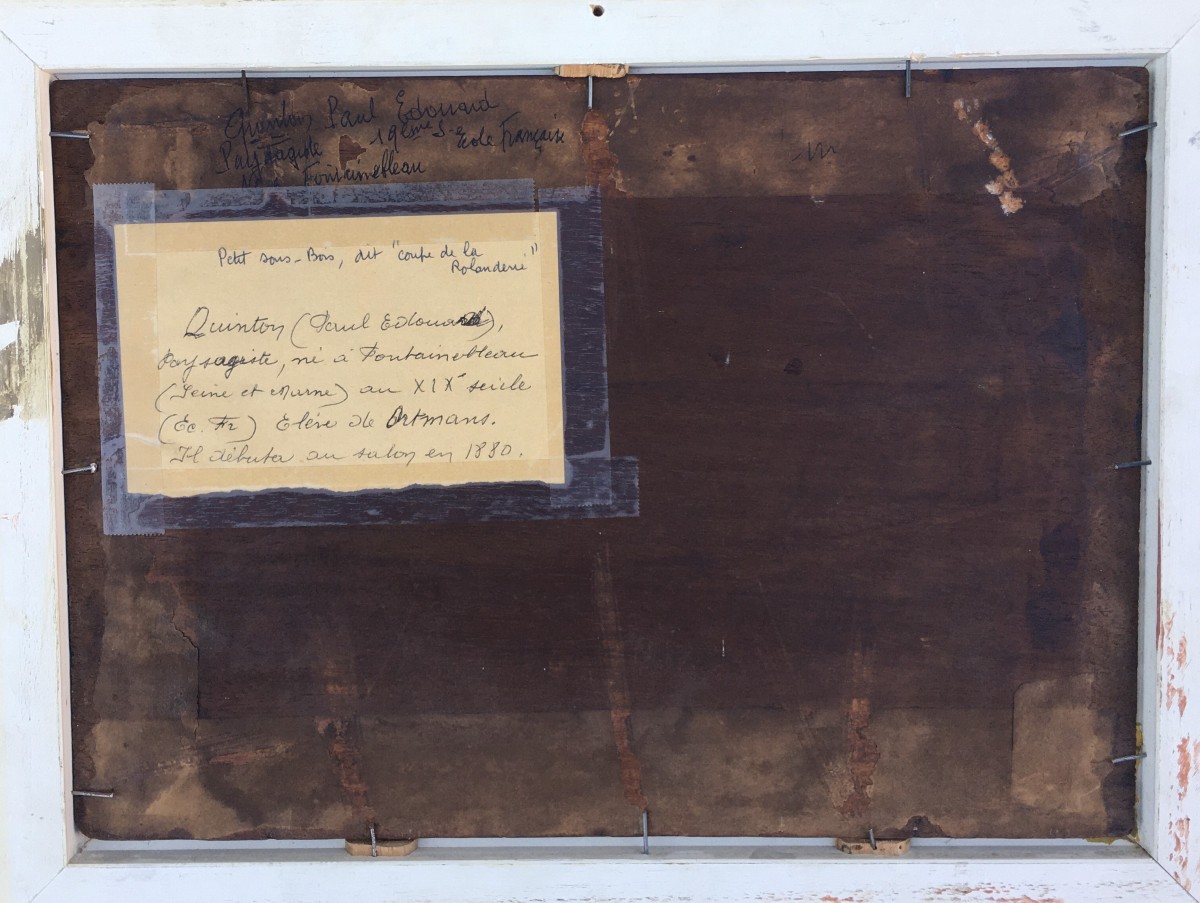 Quinton Paul Edouard
Paysagiste 19ème S. Ecole Française
Fontainebleau
Petit sous-Bois, dit "coupe de la
Rolanderie"
Quinton (Paul Edouard),
Paysagiste, né à Fontainebleau
(Seine et Marne) au XIXe seicle
(Ec. Fr) Elève de Ortmans.
Il débuta au salon en 1880.